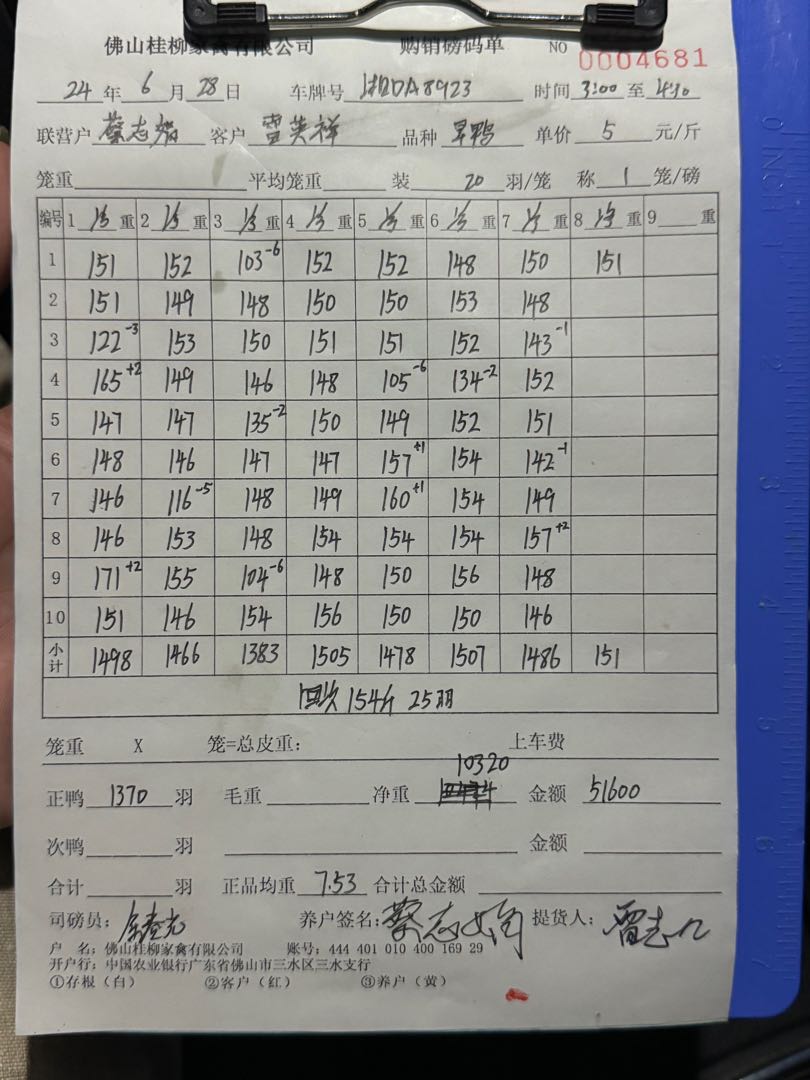 佛山桂柳家禽有限公司 购销磅码单 NO 0004681
24 年 6 月 28 日 车牌号 湘DA8923 时间 3:00 至 4:30
联营户 蔡志 客户 雷英祥 品种 旱鸭 单价 5 元/斤
笼重 平均笼重 装 20 羽/笼 称 1 笼/磅
编号 1 净 重 2 净 重 3 净 重 4 净 重 5 净 重 6 净 重 7 净 重 8 净 重 9 重
1 151 152 103-6 152 152 148 150 151
2 151 149 148 150 150 153 148
3 122-3 153 150 151 151 152 143-1
4 165+2 149 146 148 105-6 134-2 152
5 147 147 135-2 150 149 152 151
6 148 146 147 147 157+1 154 142-1
7 146 116-5 148 149 160+1 154 149
8 146 153 148 154 154 154 157+2
9 171+2 155 104-6 148 150 156 148
10 151 146 154 156 150 150 146
小计 1498 1466 1383 1505 1478 1507 1486 151
回次 154斤 25羽
笼重 X 笼=总皮重: 上车费
正鸭 1370 羽 毛重 净重 10320 金额 51600
次鸭 羽 金额
合计 羽 正品均重 7.53 合计总金额
司磅员: 养户签名: 蔡志 提货人: 雷志
户 名: 佛山桂柳家禽有限公司 账号: 444 401 010 400 169 29
开户行: 中国农业银行广东省佛山市三水区三水支行
①存根(白) ②客户(红) ③养户(黄)